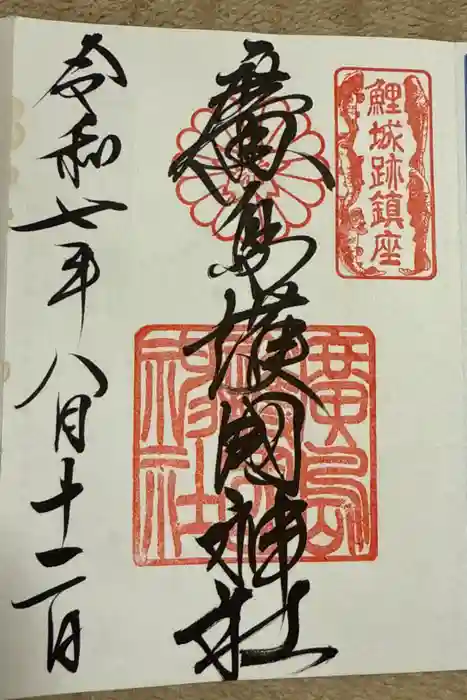 鯉城跡鎮座
廣島護國神社
廣島護國神社
令和七年八月十二日